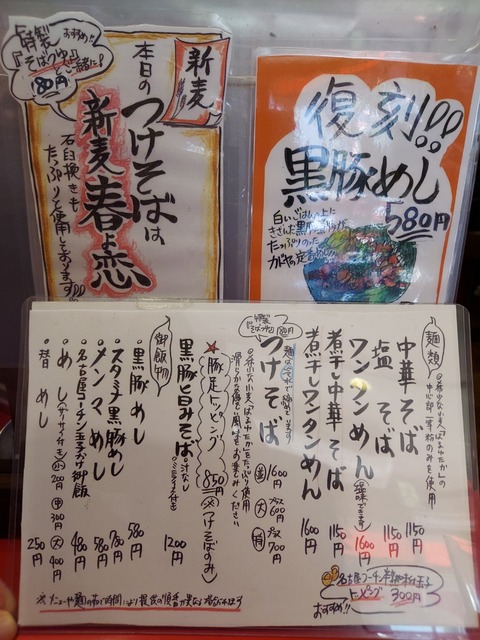 特製
おすすめ!!
『そばつゆ』
と一緒に!
180円
新麦
本日の
つけそばは
新麦
春よ恋
石臼挽きも
たっぷりと使用しております!!
復刻!!
黒豚めし
580円
白いごはんの上に
麺類
中華そば
1150円
塩そば
1150円
ワンタンめん
1600円
煮干し中華そば
1150円
煮干しワンタンめん
1600円
特製
そばつゆ
180円
つけそば
並 1600円
大 プラス600円
特 プラス700円
豚足トッピング 850円
(つけそばのみ)
黒豚旨みそば
汁なし
1200円
御飯物
・黒豚めし
580円
・スタミナ黒豚めし
780円
・メンマめし
580円
・名古屋コーチン玉子かけ御飯
480円
・めし
小 200円
中 300円
大 400円
・替めし
250円
名古屋コーチン半熟味付玉子
トッピング 300円
おすすめ!!